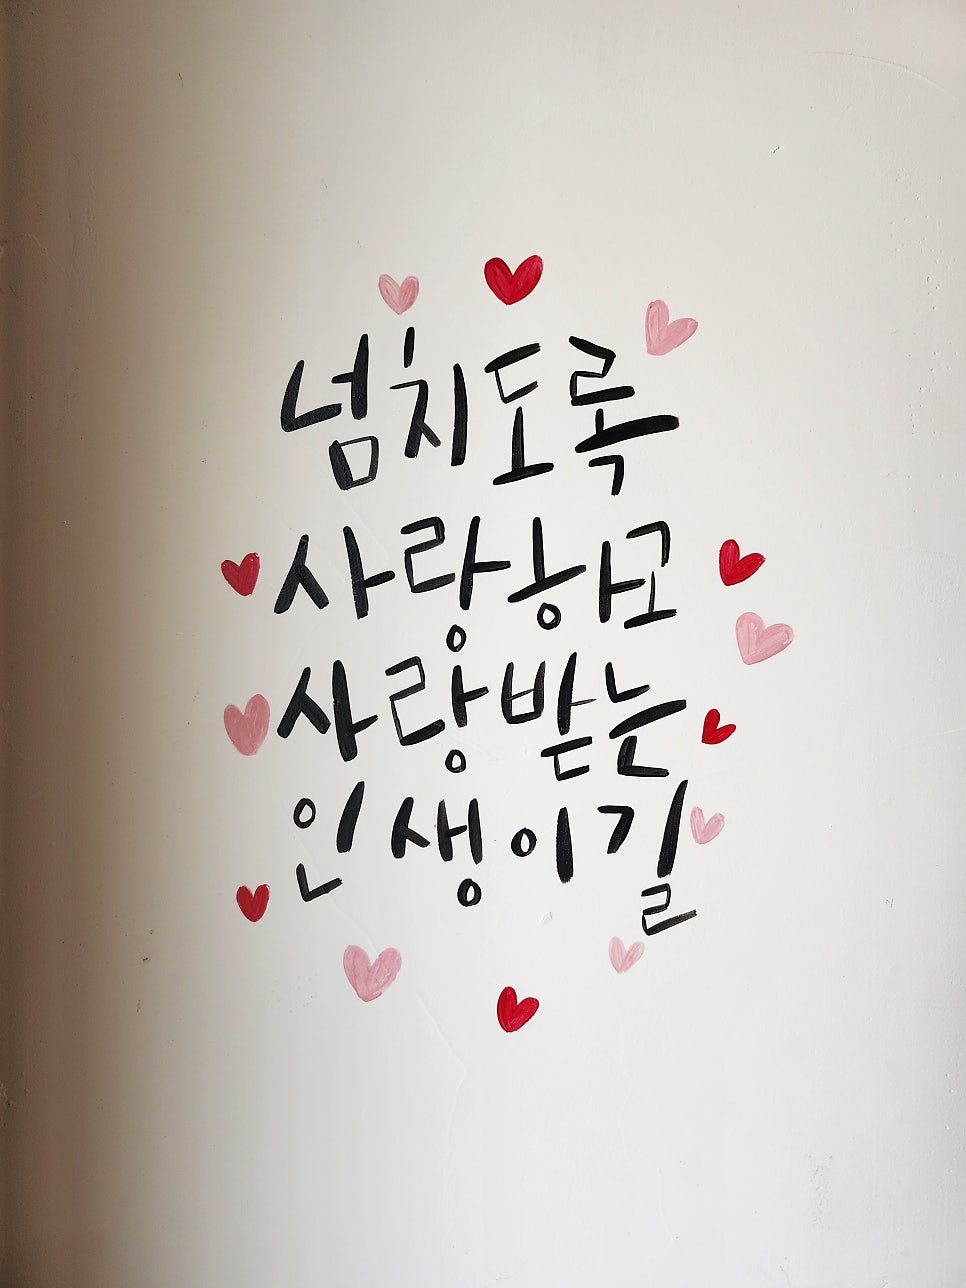 넘치도록
사랑하고
사랑받는
인생이길